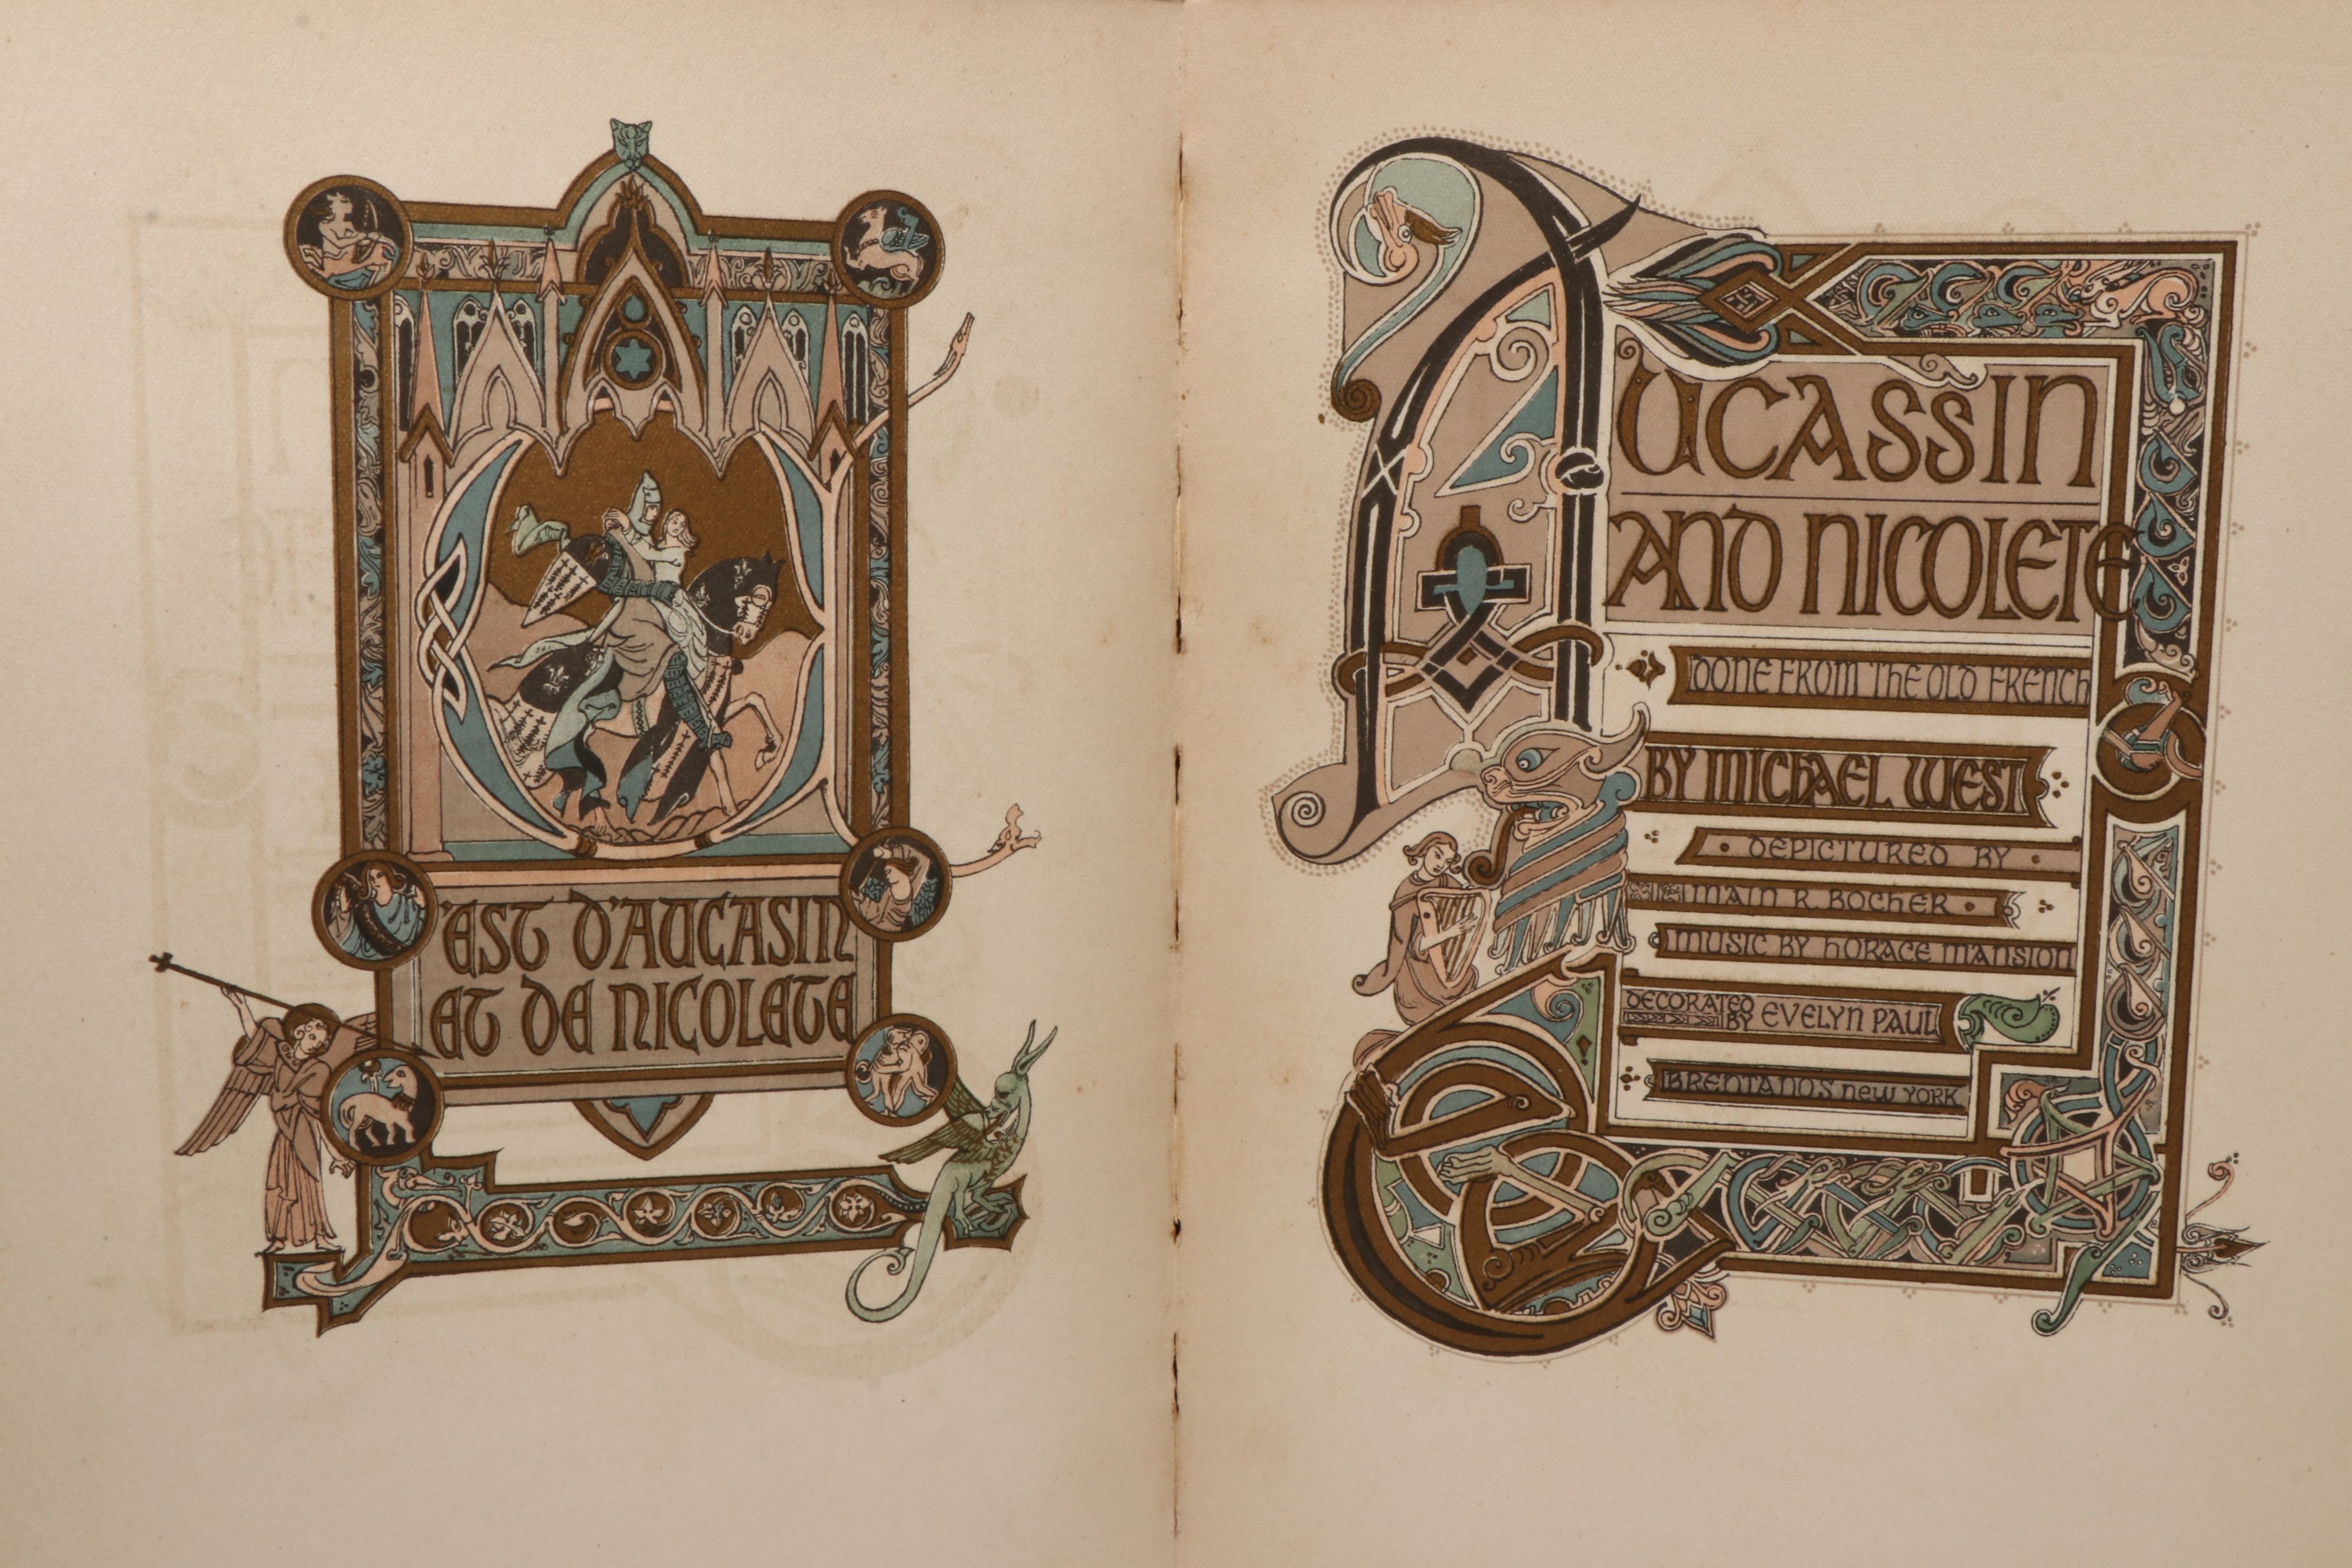 C'EST D'AUCASIN
ET DE NICOLETE
AUCASSIN
AND NICOLETE
DONE FROM THE OLD FRENCH
BY MICHAEL WEST
DEPICTURED BY
MAIN R. BOCHER
MUSIC BY HORACE MANSION
DECORATED
BY EVELYN PAUL
BRENTANO'S NEW YORK